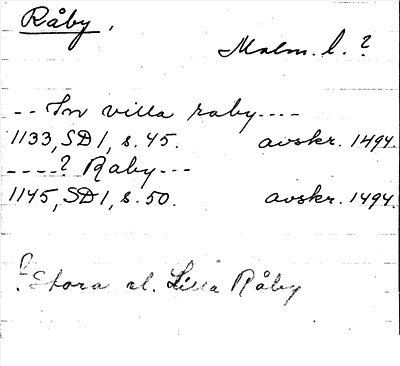 Råby.
Malm. l. ?
-- In villa raby ----
1133, SD1, s. 45. avskr. 1494.
----? Raby---
1145, SD1, s. 50. avskr. 1494.
? Stora el. Lilla Råby